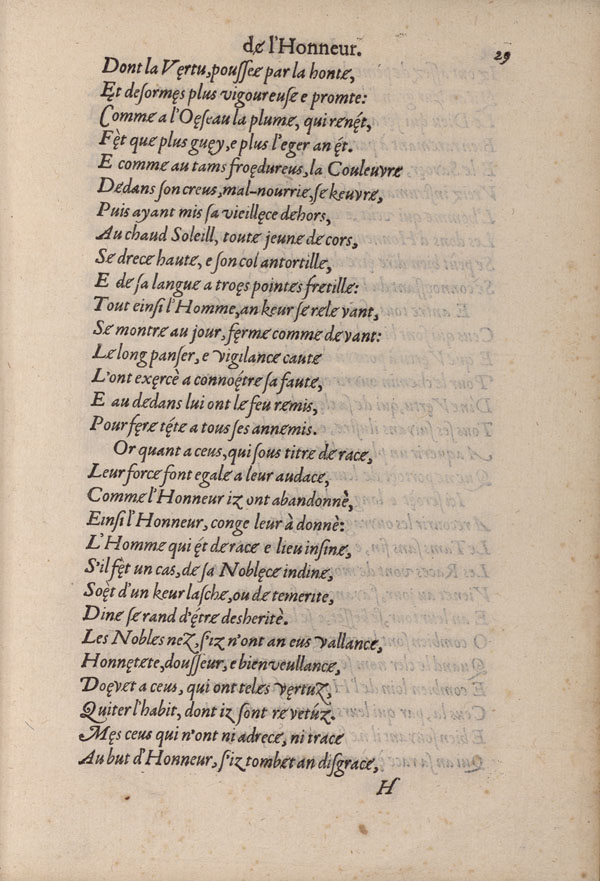 dę l'Honneur.
29
Dont la Vęrtu, pouſſee par la honte,
Ęt deſormęs plus vigoureuſe e promte:
Comme a l'Oęſeau la plume, qui renęt́,
Fèt que plus guęy, e plus l'eger an ęt́.
E comme au tams froędureus, la Couleuvre
Dedans ſon creus, mal-nourrie, ſe keuvre,
Puis ayant mis ſa vieillęce dehors,
Au chaud Soleill, toute jeune de cors,
Se drece haute, e ſon col antortille,
E de ſa langue a troęs pointes fretille:
Tout einſi l'Homme, an keur ſe rele vant,
Se montre au jour, fęrme comme devant:
Le long panſer, e vigilance caute
L'ont exęrcè a connoę́tre ſa faute,
E au dedans lui ont le feu remis,
Pour fęre tę́te a tous ſes annemis.
Or quant a ceus, qui ſous titre de race,
Leur force font egale a leur audace,
Comme l'Honneur iz ont abandonnè,
Einſi l'Honneur, conge leur à donnè:
L'Homme qui ęt́ de race e lieu inſine,
S'il fęt un cas, de ſa Noblęce indine,
Soęt d'un keur laſche, ou de temerite,
Dine ſe rand d'étre desheritè.
Les Nobles nez, ſ'iz n'ont an eus vallance,
Honnętete, douſſeur, e bienveullance,
Doęvet a ceus, qui ont teles vęrtuz,
Quiter l'habit, dont iz ſont revetúz.
Męs ceus qui n'ont ni adrece, ni trace
Au but d'Honneur, ſ'iz tombet an diſgrace,
H